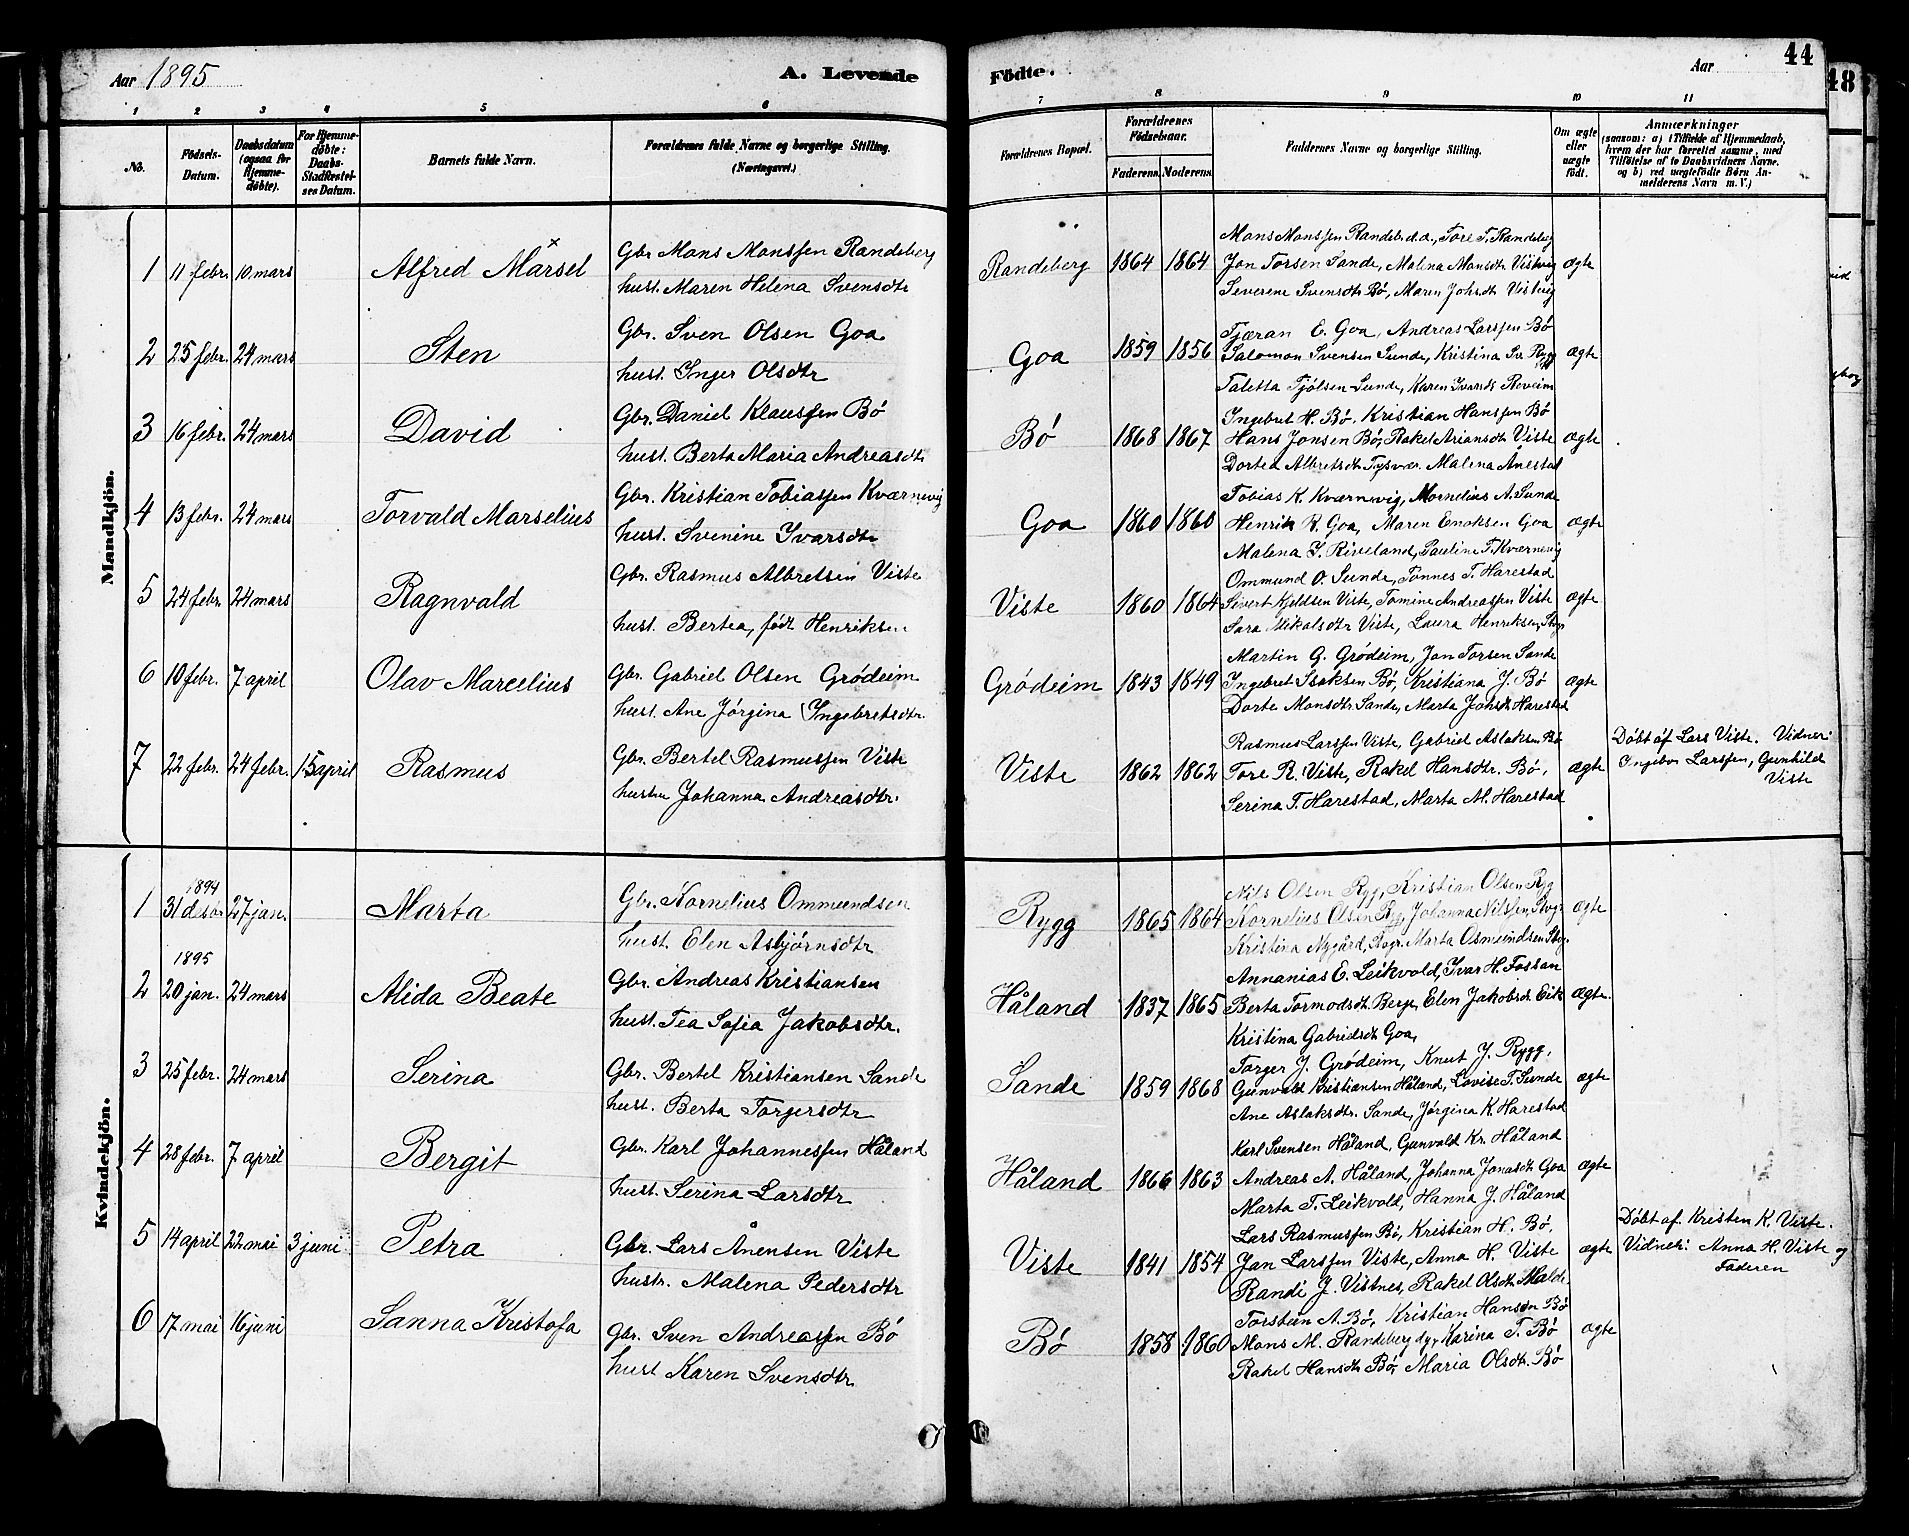 Aar 1895
A. Levende
Födte.
Aar
44
48
1 2 3 4 5 6 7 8 9 10 11
No.
Födsels-Datum.
Daabsdatum (ogsaa for Hjemme-döbte).
For Hjemme-döbte: Daabs-Stadfæstel-ses Datum.
Barnets fulde Navn.
Forældrenes fulde Navne og borgerlige Stilling. (Næringsvei.)
Forældrenes Bopæl.
Forældrenes Födselsaar.
Faderens. Moderens.
Faddernes Navne og borgerlige Stilling.
Om ægte eller uægte födt.
Anmærkninger
(saasom: a) i Tilfælde af Hjemmedaab, hvem der har forrettet samme, med Tilföielse af to Daabsvidners Navne, og b) ved uægtefödte Börn An-melderens Navn m. V.)
Mandkjön.
1 11 febr. 10 mars Alfred Marsel Gbr Mons Monssen Randeberg
hust. Maren Helena Svensdtr
Randeberg 1864 1864 ægte
Mons Monssen Randeb. d.a., Tore T. Randeberg
Jon Torsen Sande, Malena Monsdtr Vistvig
Severene Svensdtr Bø, Maren Johsdtr Vistvig
2 25 febr. 24 mars Sten Gbr. Sven Olsen Goa
hust. Inger Olsdtr
Goa 1859 1856 ægte
Tjæran E. Goa, Andreas Larssen Bø
Salomon Svensen Sunde, Kristina Sv. Rygg
Taletta Tjølsen Sunde, Karen Ivarsdt Reveim
3 16 febr. 24 mars David Gbr. Daniel Klaussen Bø
hust. Berta Maria Andreasdtr
Bø 1868 1867 ægte
Ingebret H. Bø, Kristian Hanssen Bø
Hans Jonsen Bø, Rakel Ariansdtr Viste
Dortea Albretsdtr Tysvær. Malena Anestad
4 13 febr. 24 mars Torvald Marselius Gbr. Kristian Tobiassen Kværnevig
hust. Svenine Ivarsdtr
Goa 1860 1860 ægte
Tobias K. Kværnevig, Kornelius A. Sunde
Henrik R. Goa, Maren Enoksen Goa
Malena I. Riveland, Pauline T. Kværnevig
5 24 febr. 24 mars Ragnvald Gbr. Rasmus Albretsen Viste
hust. Bertea, født Henriksen
Viste 1860 1864 ægte
Ommund O. Sunde, Tønnes T. Harestad
Sivert Kjeldsen Viste, Tomine Andreassen Viste
Sara Mikalsdtr Viste, Laura Henriksen, Stvgr
6 10 febr. 7 april Olav Marcelius Gbr. Gabriel Olsen Grødeim
hust. Ane Jørgina Ingebretsdtr.
Grødeim 1843 1849 ægte
Martin G. Grødeim, Jon Torsen Sande
Ingebret Isaksen Bø, Kristiana J. Bø
Dorte Monsdtr Sande, Marta Johsdt Harestad
7 22 febr. 24 febr. 15 april Rasmus Gbr. Bertel Rasmussen Viste
hustru Johanna Andreasdtr.
Viste 1862 1862 ægte
Rasmus Larssen Viste, Gabriel Aslaksen Bø
Tore R. Viste, Rakel Hansdtr. Bø,
Serina T. Harestad, Marta M. Harestad
Døbt af Lars Viste. Vidner:
Ingebor Larssen, Gunhild
Viste
Kvindekjön.
1894
1 31 desbr 27 jan. Marta Gbr. Kornelius Ommundsen
hust. Elen Asbjørnsdtr
Rygg 1865 1864 ægte
Nils Olsen Ryg, Kristian Olsen Ryg
Kornelius Olsen Ryg, Johanna Nilssen, Stvgr
Kristina Nygård, Stvgr. Marta Osmundsen Stvgr.
1895
2 20 jan. 24 mars Alida Beate Gbr. Andreas Kristiansen
hust. Tea Sofia Jakobsdtr.
Håland 1837 1865 ægte.
Annanias E. Leikvold, Ivar H. Fossan
Berta Tormodsdt. Berge, Elen Jakobsdt. Eik
Kristina Gabrielsdt Goa,
3 25 febr. 24 mars Serina Gbr. Bertel Kristiansen Sande
hust. Berta Torgersdtr
Sande 1859 1868 ægte
Torger J. Grødeim, Knut J. Rygg,
Gunvald Kristiansen Håland, Lovise T. Sunde
Ane Aslaksdtr. Sande, Jørgina K. Harestad
4 28 febr. 7 april Bergit Gbr. Karl Johannessen Håland
hust. Serina Larsdtr
Håland 1866 1863 ægte
Karl Svensen Håland, Gunvald Kr. Håland
Andreas A. Håland, Johanna Jonasdt Goa
Marta T. Leikvold, Hanna J. Håland
5 14 april 22 mai 3 juni Petra Gbr. Lars Ånensen Viste
hustr. Malena Pedersdtr
Viste 1841 1854 ægte
Lars Rasmussen Bø, Kristian H. Bø,
Jan Larssen Viste, Anna H. Viste
Randi J. Vistnes, Rakel Olsdt. Malde.
Døbt af Kristen K. Viste.
Vidner: Anna H. Viste og
Faderen
6 17 mai 16 juni Sanna Kristofa Gbr. Sven Andreassen Bø
hust Karen Svensdtr
Bø 1858 1860 ægte
Torstein A. Bø, Kristian Hansen Bø
Mons M. Randeberg dy, Karina T. Bø
Rakel Hansdt Bø, Maria Olsdtr. Bø